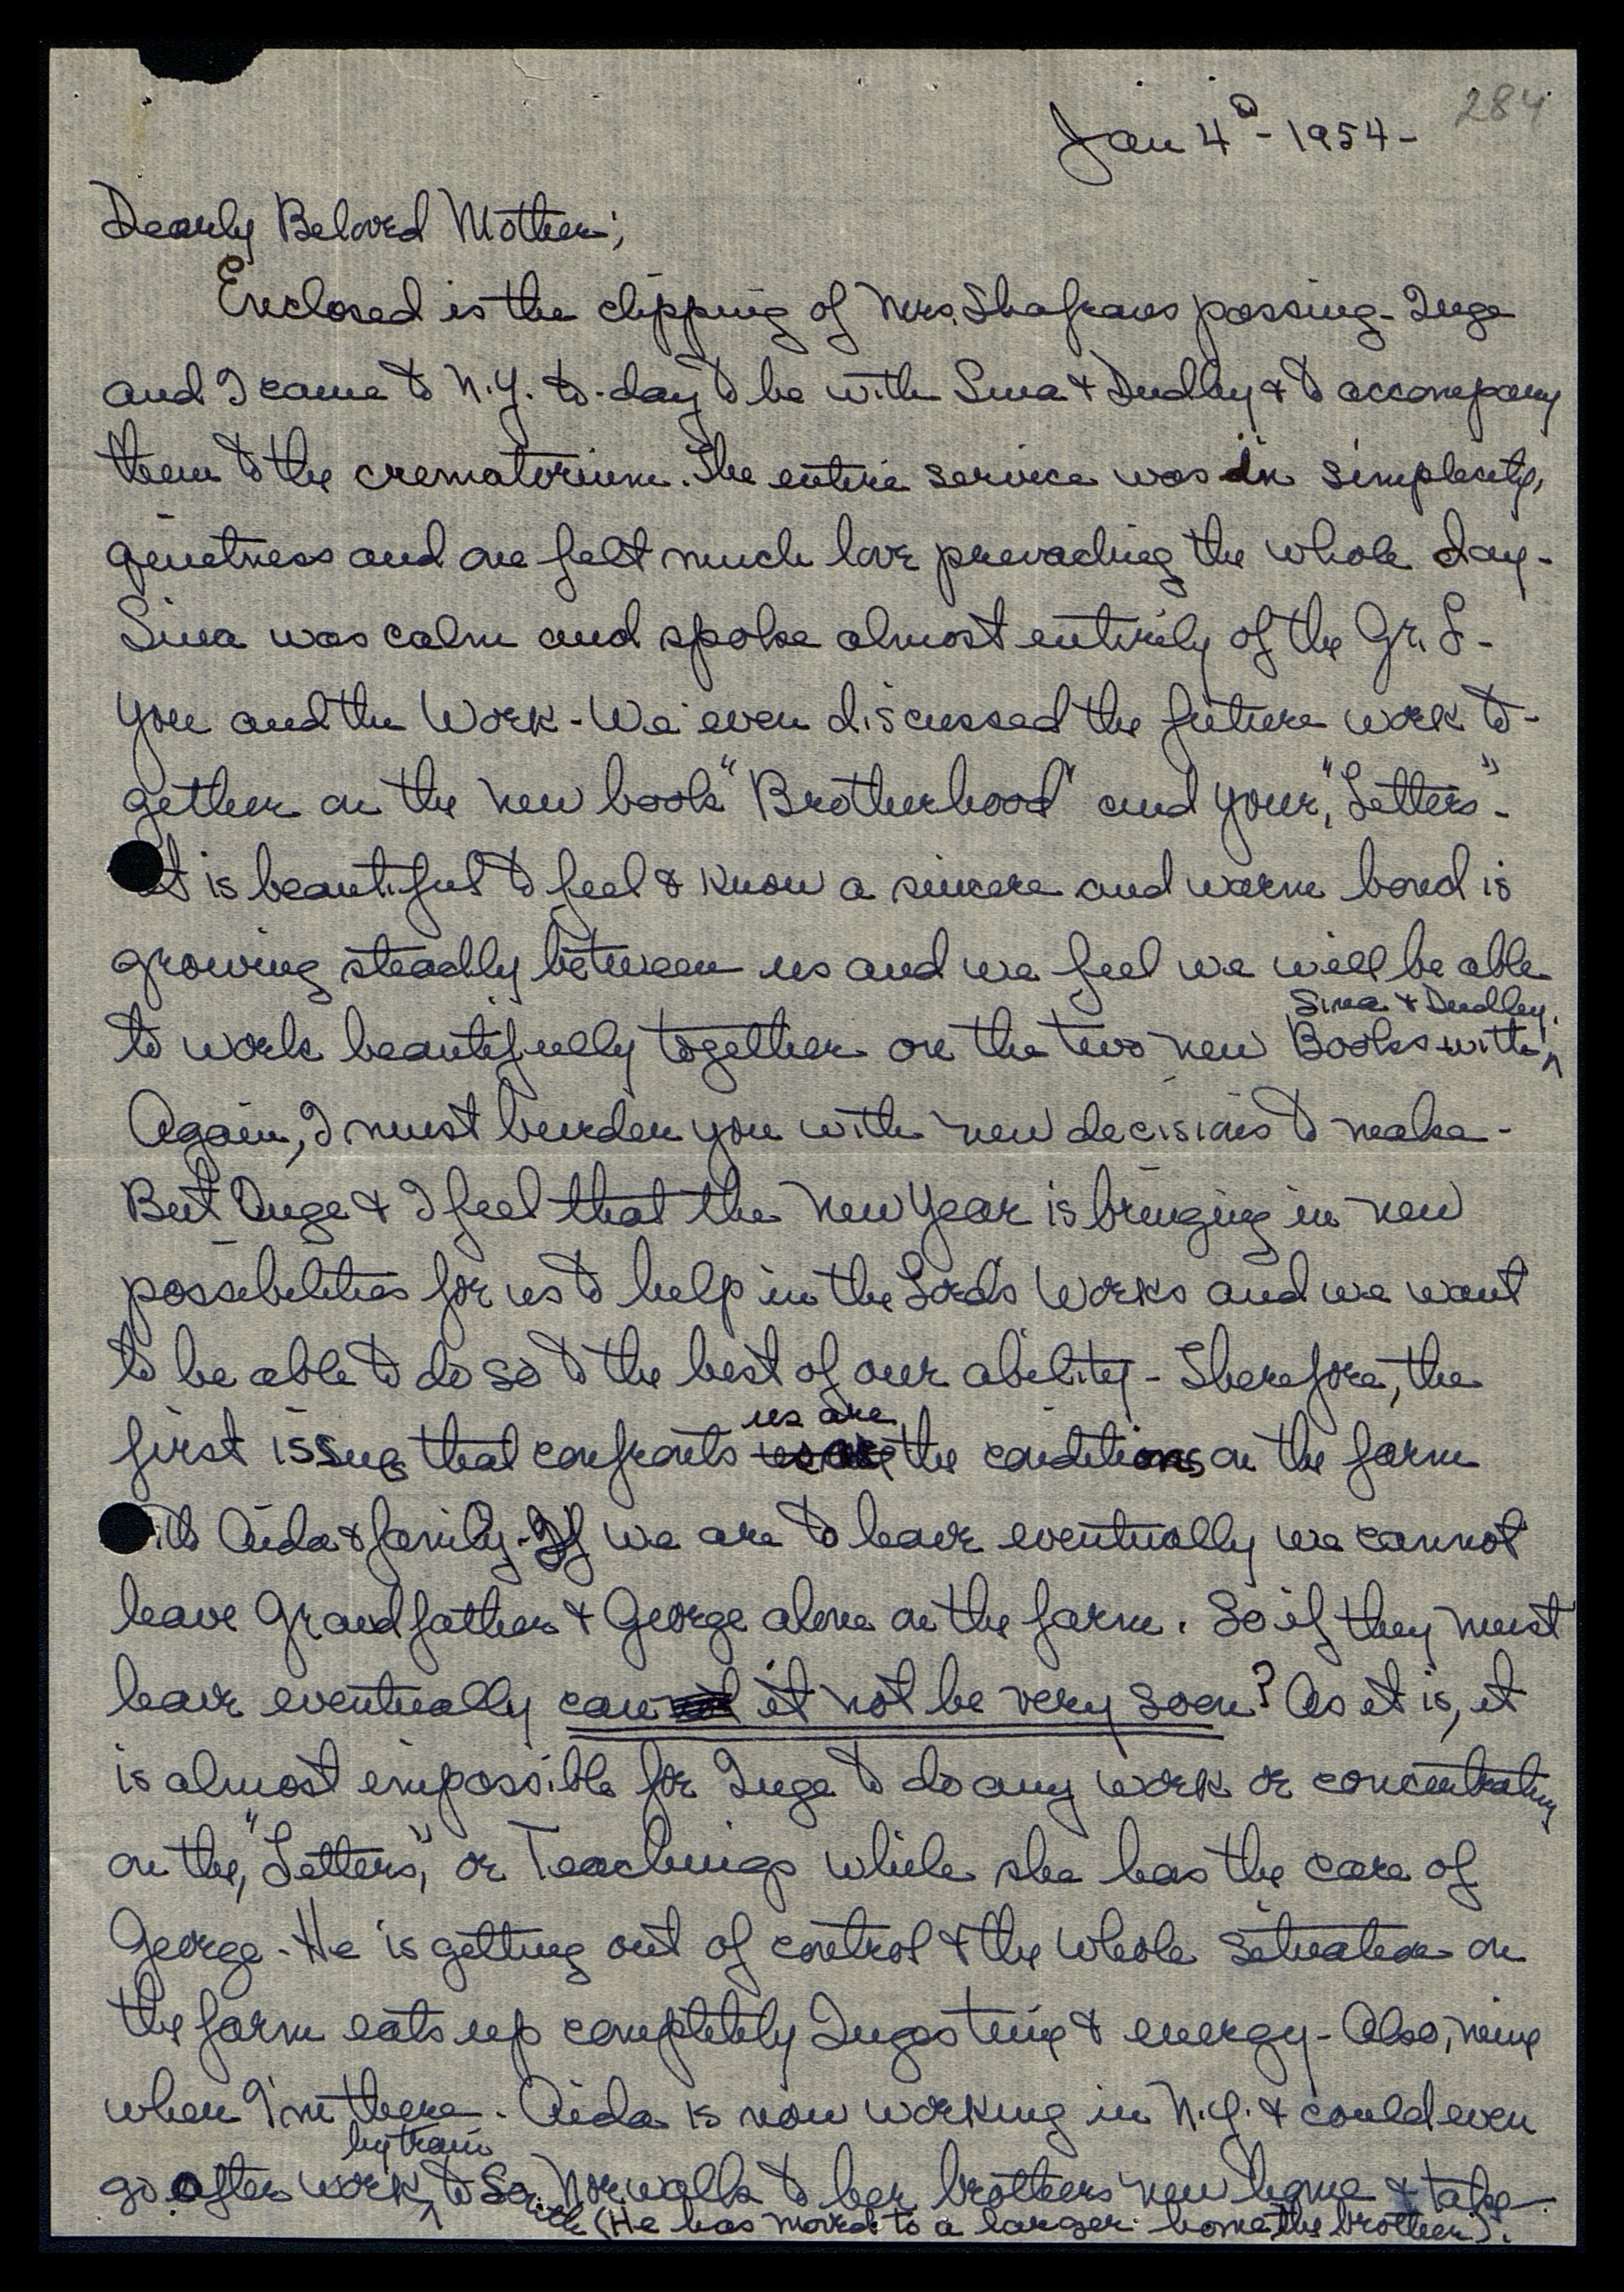 284
Jan 4th - 1954 -
Dearly Beloved Mother;
Enclosed is the clipping of Mrs. Shafrans passing - Inge
and I came to N.Y. to-day to be with Sina & Dudley & to accompany
them to the crematorium. The entire service was in simplicity,
quietness and one felt much love prevading the whole day -
Sina was calm and spoke almost entirely of the Gr. L -
you and the Work - We even discussed the future work to-
gether on the new book "Brotherhood" and your, "Letters" -
It is beautiful to feel & know a sincere and warm bond is
growing steadily between us and we feel we will be able
Sina & Dudley.
to work beautifully together on the two new Books with ^
Again, I must burden you with new decisions to make -
But Inge & I feel that the New Year is bringing in new
possibilities for us to help in the Lord's Works and we want
to be able to do so to the best of our ability - Therefore, the
us are
first issue that confronts the conditions on the farm
with Aida & family - If we are to leave eventually we cannot
leave Grandfather & George alone on the farm. So if they must
leave eventually can it not be very soon? As it is, it
is almost impossible for Inge to do any work or concentrating
on the, "Letters", or Teachings while she has the care of
George - He is getting out of control & the whole situation on
the farm eats up completely Inges time & energy - Also, mine
when I'm there - Aida is now working in N.Y. & could even
by train
go after work ^ to So. Norwalk to her brothers new home & take
(He has moved to a larger home, the brother).